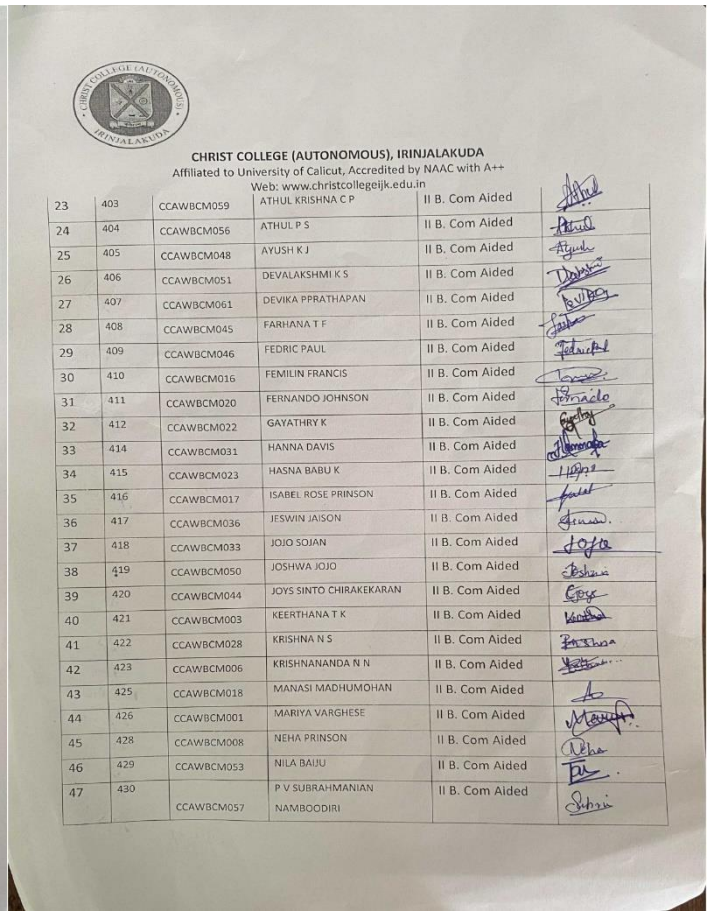 CHRIST COLLEGE (AUTONOMOUS)
IRINJALAKUDA
CHRIST COLLEGE (AUTONOMOUS), IRINJALAKUDA
Affiliated to University of Calicut, Accredited by NAAC with A++
Web: www.christcollegeijk.edu.in
23 403 CCAWBCM059 ATHUL KRISHNA C P II B. Com Aided Athul
24 404 CCAWBCM056 ATHUL P S II B. Com Aided Athul
25 405 CCAWBCM048 AYUSH K J II B. Com Aided Ayush
26 406 CCAWBCM051 DEVALAKSHMI K S II B. Com Aided
27 407 CCAWBCM061 DEVIKA PPRATHAPAN II B. Com Aided
28 408 CCAWBCM045 FARHANA T F II B. Com Aided
29 409 CCAWBCM046 FEDRIC PAUL II B. Com Aided
30 410 CCAWBCM016 FEMILIN FRANCIS II B. Com Aided
31 411 CCAWBCM020 FERNANDO JOHNSON II B. Com Aided
32 412 CCAWBCM022 GAYATHRY K II B. Com Aided
33 414 CCAWBCM031 HANNA DAVIS II B. Com Aided
34 415 CCAWBCM023 HASNA BABU K II B. Com Aided
35 416 CCAWBCM017 ISABEL ROSE PRINSON II B. Com Aided
36 417 CCAWBCM036 JESWIN JAISON II B. Com Aided
37 418 CCAWBCM033 JOJO SOJAN II B. Com Aided JOJO
38 419 CCAWBCM050 JOSHWA JOJO II B. Com Aided
39 420 CCAWBCM044 JOYS SINTO CHIRAKEKARAN II B. Com Aided
40 421 CCAWBCM003 KEERTHANA T K II B. Com Aided
41 422 CCAWBCM028 KRISHNA N S II B. Com Aided
42 423 CCAWBCM006 KRISHNANANDA N N II B. Com Aided
43 425 CCAWBCM018 MANASI MADHUMOHAN II B. Com Aided
44 426 CCAWBCM001 MARIYA VARGHESE II B. Com Aided
45 428 CCAWBCM008 NEHA PRINSON II B. Com Aided Neha
46 429 CCAWBCM053 NILA BAIJU II B. Com Aided
47 430 P V SUBRAHMANIAN II B. Com Aided
CCAWBCM057 NAMBOODIRI